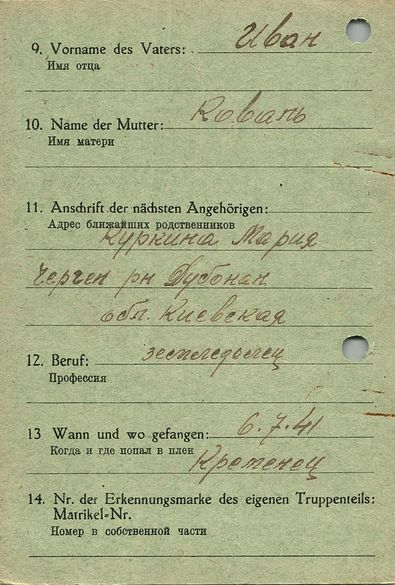 9. Vorname des Vaters: Иван
Имя отца
10. Name der Mutter: Коваль
Имя матери
11. Anschrift der nächsten Angehörigen:
Адрес ближайших родственников
Куркина Мария
рн
обл. Киевская
12. Beruf: земледелец
Профессия
13 Wann und wo gefangen: 6.7.41
Когда и где попал в плен
Кременец
14. Nr. der Erkennungsmarke des eigenen Truppenteils:
Matrikel-Nr.
Номер в собственной части